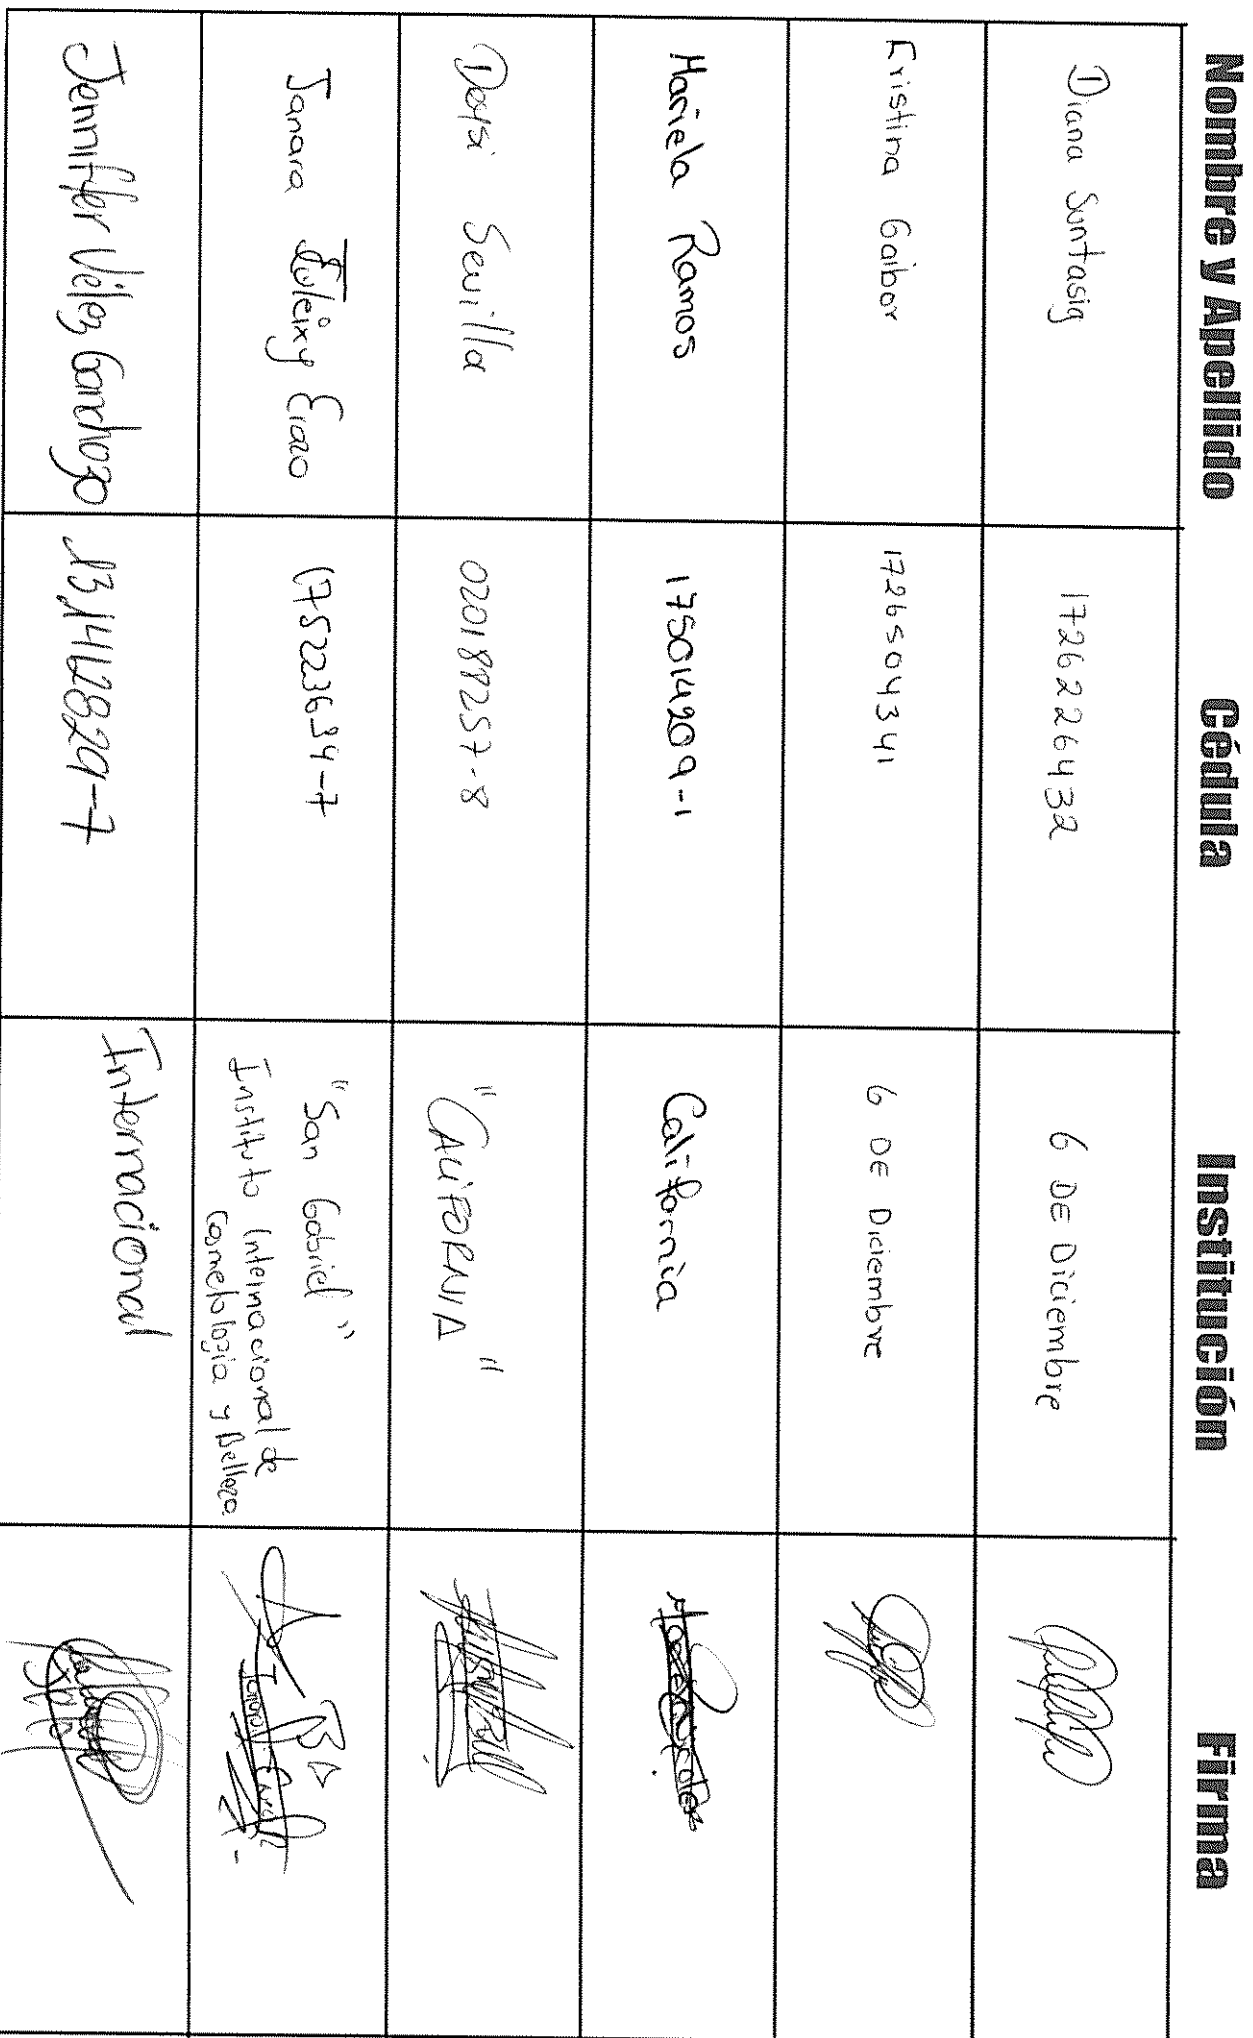 Nombre y Apellido Cédula Institución Firma
Diana Suntasig 1726226432 6 DE Diciembre
Kristina Gaibor 1726504341 6 DE Diciembre
Mariela Ramos 175014209-1 California
Deysi Sevilla 020188257-8 "CALIFORNIA"
Janara Euleixy Erazo 175223634-7 "San Gabriel"
Instituto Internacional de
Cosmetologia y Belleza
Jennifer Vélez Ganchozo 131462829-7 Internacional